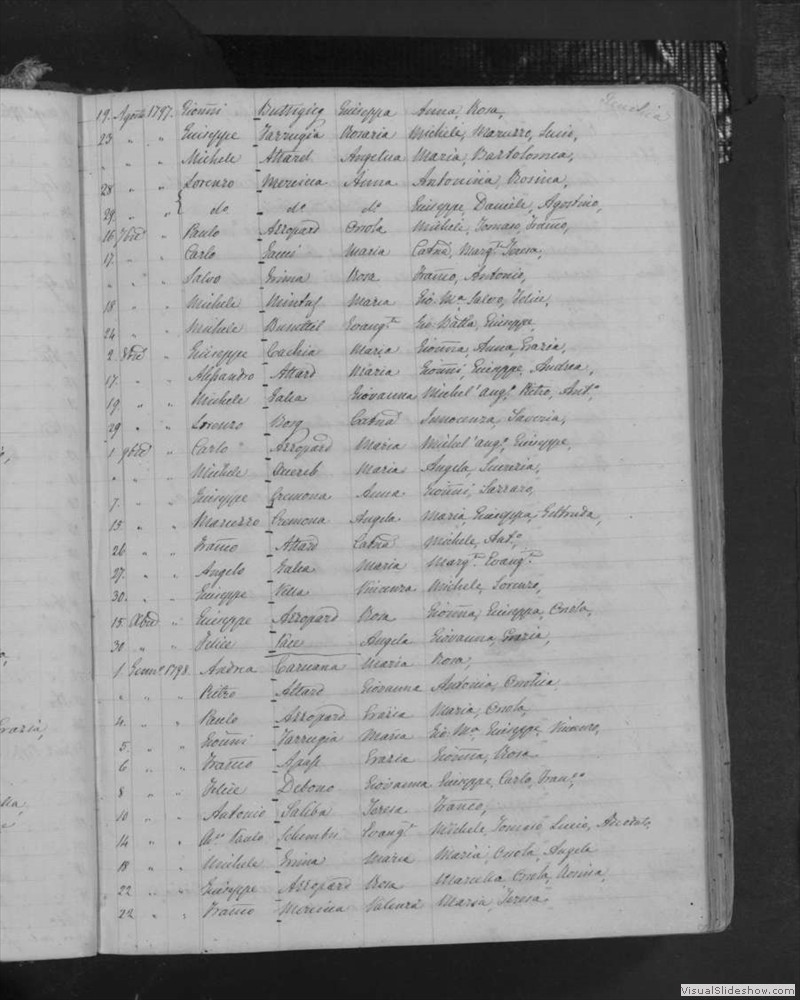 19. Agosto 1797. Gionni Buttigieg Giuseppa Anna, Rosa,
23 " " Giuseppe Farrugia Rosaria Michele, Maruzzo, Lucio,
" " " Michele Attard Angelica Maria, Bartolomea,
28 " " Lorenzo Mercieca Anna Antonina, Rosina,
29. " " { do do do Giuseppe, Daniele, Agostino,
16 7bre " Paulo Azzopard Onola Michele, Tomaso, Franco,
17. " " Carlo Maria Catna, Margta, Teresa,
" " " Salvo Grima Rosa Franco, Antonio,
18 " " Michele Mintuf Maria Gio Ma Salvo, Felice,
24 " " Michele Busuttil Evangta Gio Batta, Giuseppe,
2 8bre " Giuseppe Cachia Maria Gionna, Anna, Grazia,
17. " " Alessandro Attard Maria Gionni, Giuseppe, Andrea,
19 " " Michele Galea Giovanna Michel'ango, Pietro, Anto
29 " " Lorenzo Borg Catna Innocenza, Saveria,
1 9bre " Carlo Azzopard Maria Michel'ango, Giuseppe,
" " " Michele Buereb Maria Angela, Lucrezia,
7. " " Giuseppe Cremona Anna Gionni, Lazzaro,
15 " " Maruzzo Cremona Angela Maria, Giuseppa, Geltruda,
26 " " Franco Attard Catna Michele, Anto,
27. " " Angelo Galea Maria Margta, Evangta
30. " " Giuseppe Vella Vincenza Michele, Lorenzo,
15 Xbre " Giuseppe Azzopard Rosa Gionna, Giuseppa, Onola,
30 " " Felice Pace Angela Giovanna, Grazia,
1 Genno 1798. Andrea Caruana Maria Rosa,
" " " Pietro Attard Giovanna Antonia,
4. " " Paulo Azzopard Grazia Maria, Onola,
5. " " Gionni Farrugia Maria Gio Ma, Giuseppe, Vincenzo,
6 " " Franco Apap Grazia Gionna, Rosa
8 " " Felice Debono Giovanna Giuseppe, Carlo, Franco
10 " " Antonio Saliba Teresa Franco,
14 " " Paulo Schembri Evangta Michele, Tomaso, Lucio,
18 " " Michele Grima Maria Maria, Onola, Angela
22 " " Giuseppe Azzopard Rosa Marulla, Onola, Rosina,
22 " " Franco Mercieca Valenza Maria, Teresa
VisualSlideshow.com